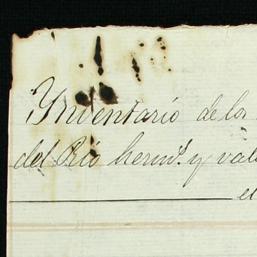 Ynventario de los
del Rio herms. y vale
el